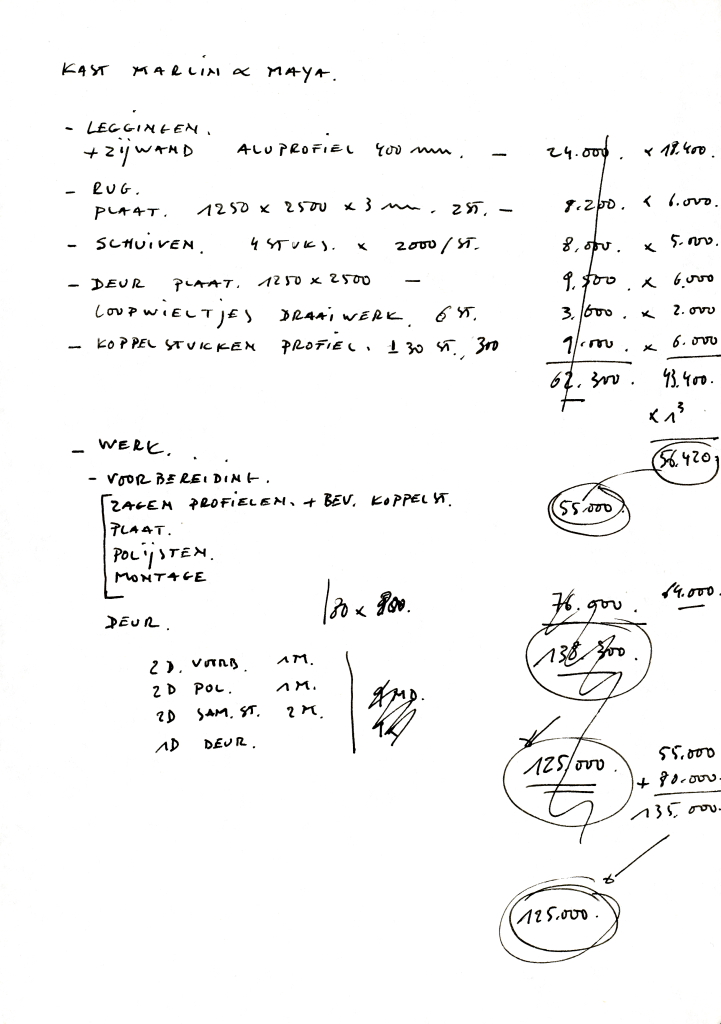 KAST MARLIN & MAYA.
- LEGGINGEN.
+ ZIJWAND ALUPROFIEL 400 mm. - 24.000. × 18.400.
- RUG.
PLAAT. 1250 × 2500 × 3 mm. 2ST. - 8.200. × 6.000.
- SCHUIVEN. 4 STUKS. × 2000/ST. 8.000. × 5.000.
- DEUR PLAAT. 1250 × 2500 - 9.500 × 6.000
LOOPWIELTJES DRAAIWERK. 6 ST. 3.600. × 2.000
- KOPPELSTUKKEN PROFIEL. ± 30 ST., 300 9.000. × 6.000
62.300. 43.400.
× 1³
56.420
- WERK.
- VOORBEREIDING.
ZAGEN PROFIELEN. + BEV. KOPPELST. 55.000.
PLAAT.
POLIJSTEN.
MONTAGE
64.000.
DEUR. 80 × 76.000.
138.300.
2D. VOORB. 1M.
2D POL. 1M.
2D SAM.ST. 2M.
1D DEUR.
125.000. 55.000
+ 80.000.
135.000.
125.000.